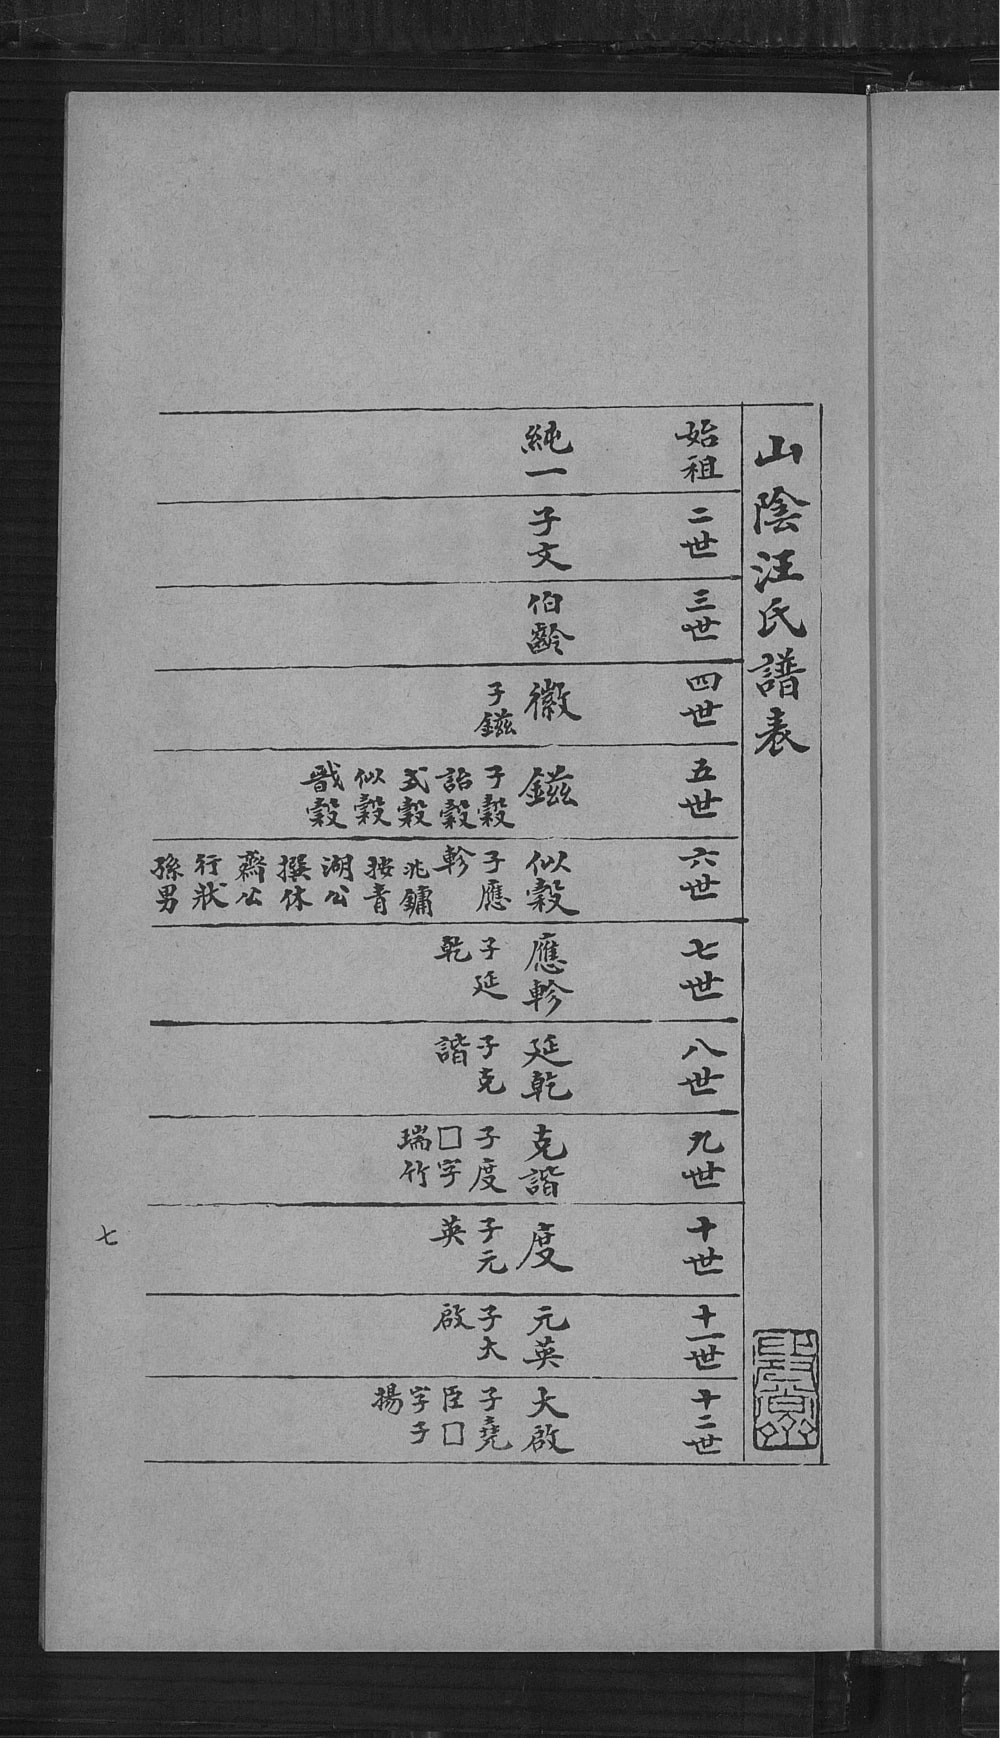 山陰汪氏譜表
始祖
純一
二世
子文
三世
伯齡
四世
徽
子鎡
五世
鎡
子穀
詒穀
式穀
似穀
戩穀
六世
似穀
子應
軫
兆鏞
按青
湖公
撰休
齋公
行狀
孫男
七世
應軫
子延
乾
八世
延乾
子克
諧
九世
克諧
子度
□字
瑞竹
十世
度
子元
英
十一世
元英
子大
啟
十二世
大啟
子堯
臣□
字子
揚
七